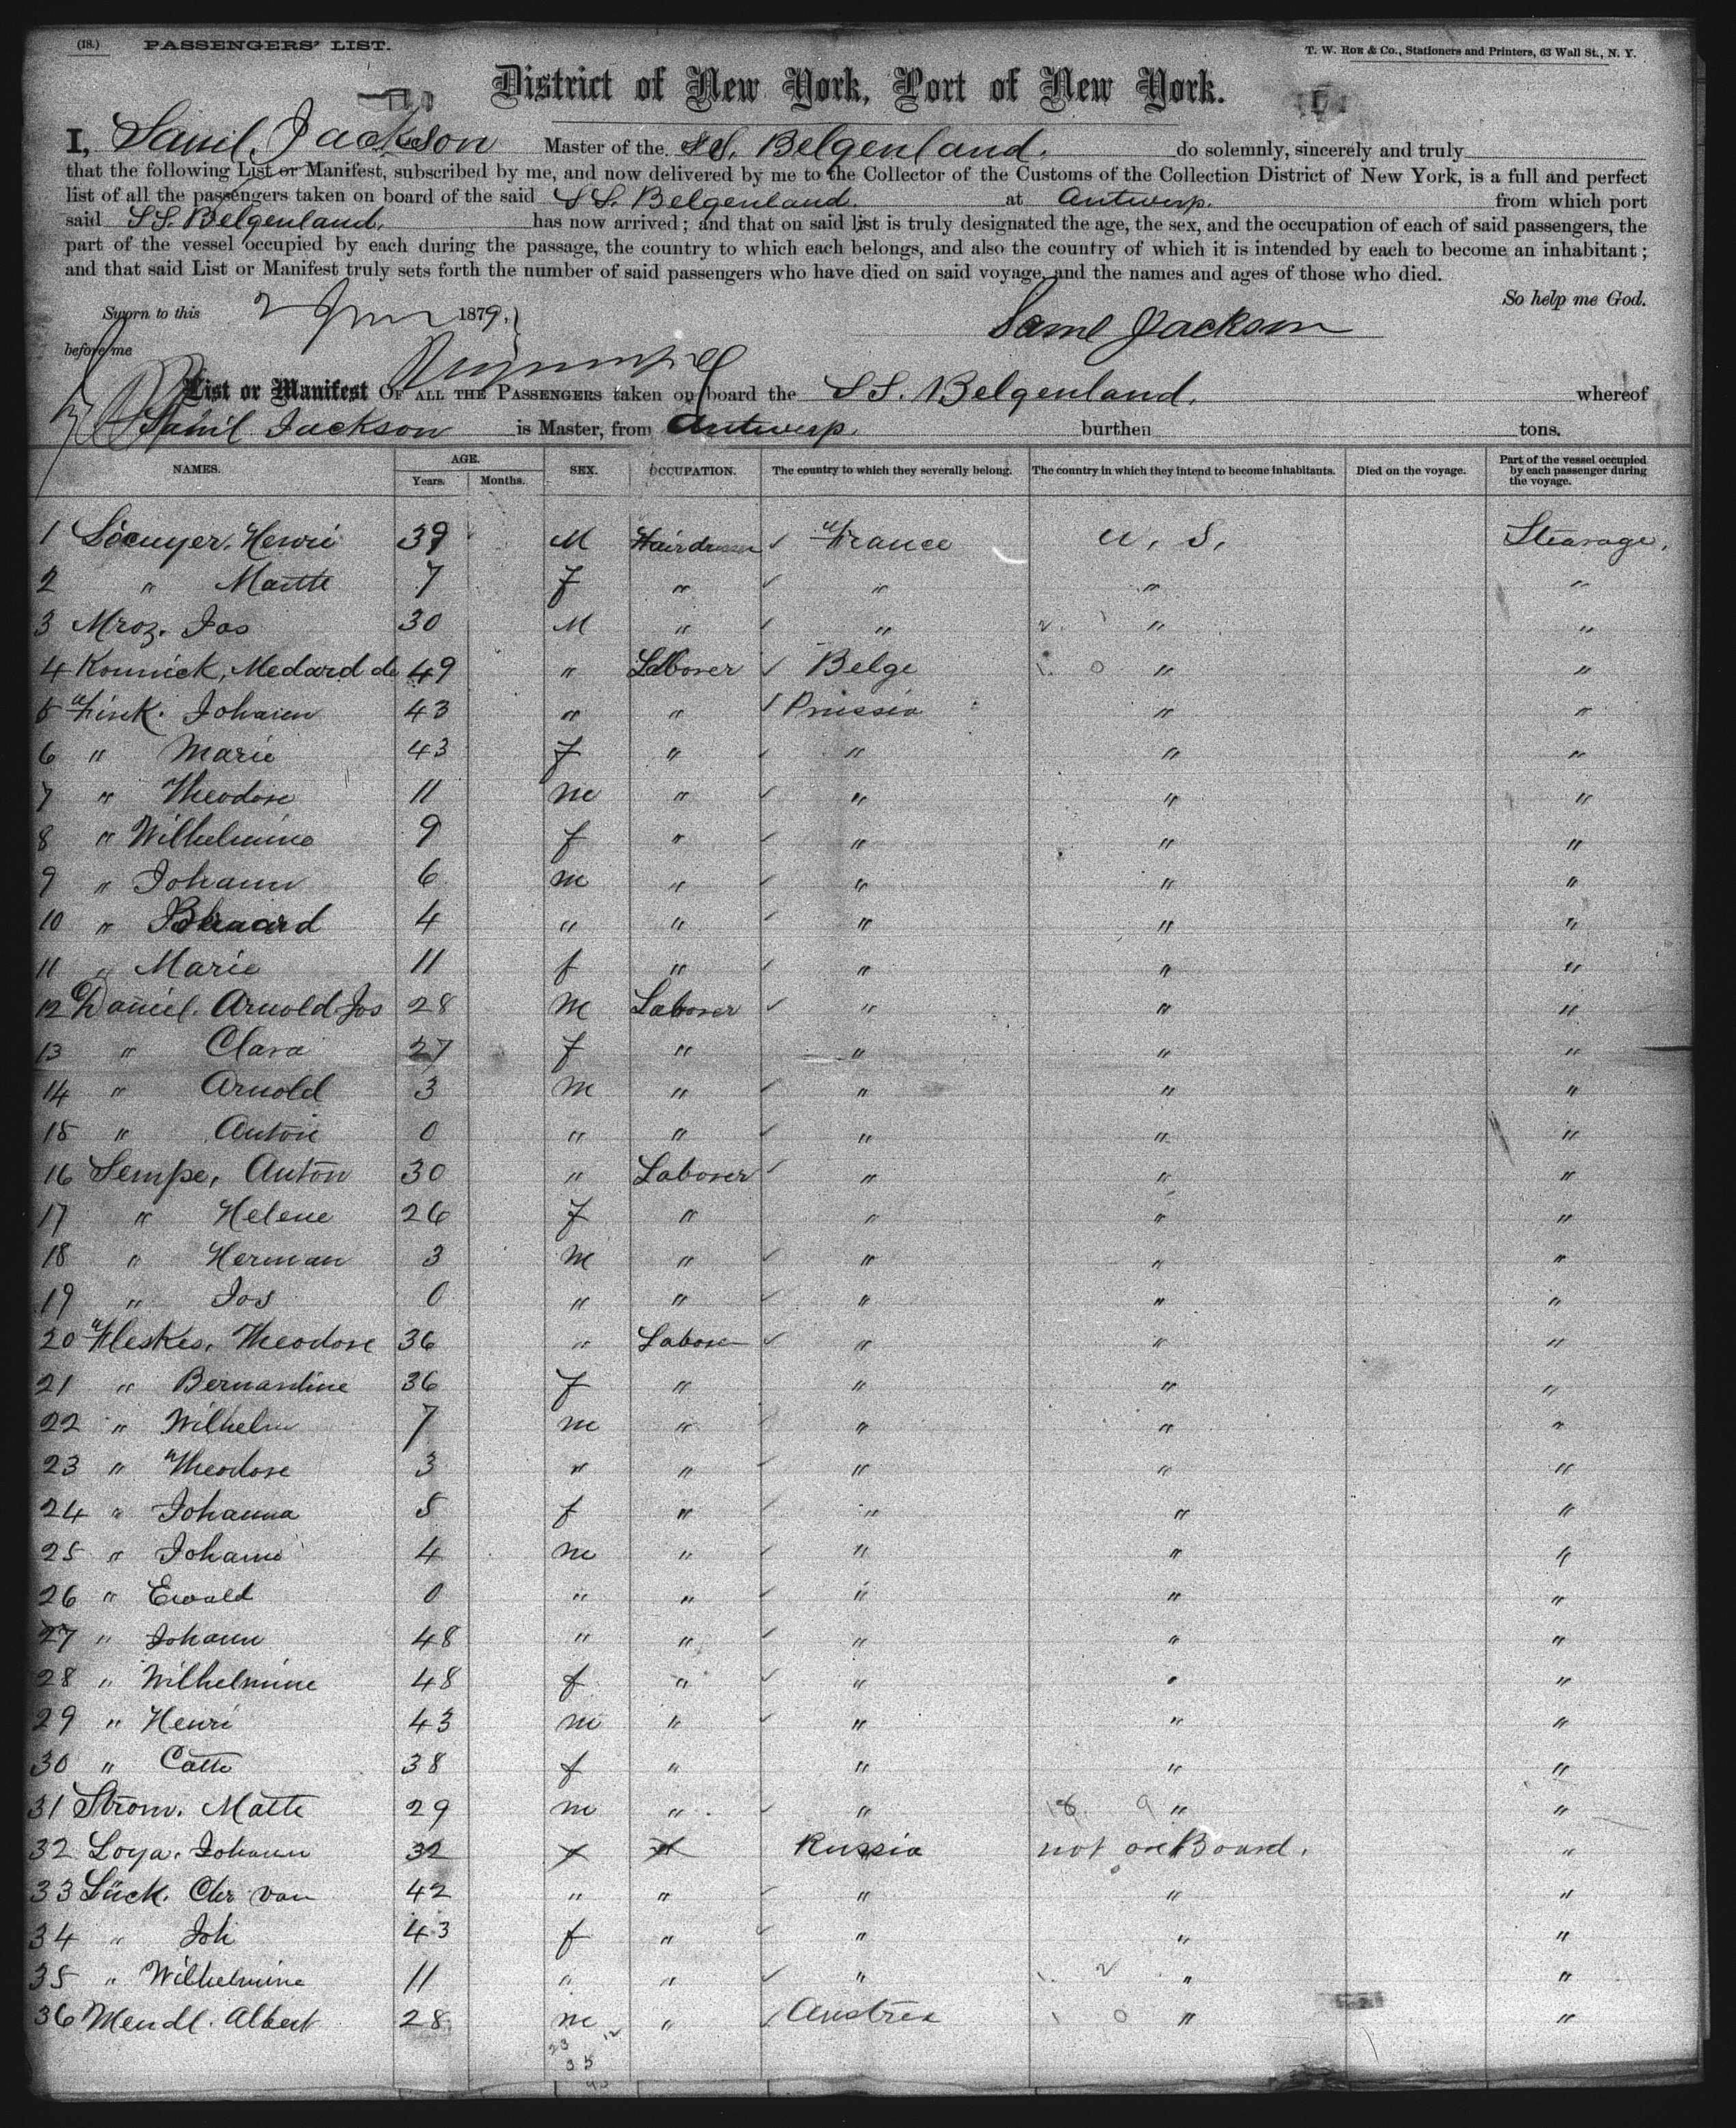 (18.) PASSENGERS' LIST. T. W. ROE & Co., Stationers and Printers, 63 Wall St., N. Y.
District of New York, Port of New York.
I, Saml. Jackson Master of the SS. Belgenland. do solemnly, sincerely and truly
that the following List or Manifest, subscribed by me, and now delivered by me to the Collector of the Customs of the Collection District of New York, is a full and perfect
list of all the passengers taken on board of the said SS. Belgenland. at Antwerp. from which port
said SS. Belgenland. has now arrived; and that on said list is truly designated the age, the sex, and the occupation of each of said passengers, the
part of the vessel occupied by each during the passage, the country to which each belongs, and also the country of which it is intended by each to become an inhabitant;
and that said List or Manifest truly sets forth the number of said passengers who have died on said voyage, and the names and ages of those who died.
So help me God.
Sworn to this 2 June 1879.
Saml Jackson
before me
List or Manifest OF ALL THE PASSENGERS taken on board the SS. Belgenland. whereof
Saml Jackson is Master, from Antwerp. burthen tons.
NAMES. AGE. Years. Months. SEX. OCCUPATION. The country to which they severally belong. The country in which they intend to become inhabitants. Died on the voyage. Part of the vessel occupied by each passenger during the voyage.
1 Henri 39 M Hairdresser France U. S. Stearage.
2 " 7 f " " " "
3 Mroz. Jos 30 M " " " "
4 Konnick, Medard de 49 " Laborer Belge " "
5 Fink. Johann 43 " " Prussia " "
6 " Marie 43 f " " " "
7 " Theodore 11 m " " " "
8 " Wilhelmine 9 f " " " "
9 " Johann 6 m " " " "
10 " 4 " " " " "
11 " Marie 11 f " " " "
12 Daniel. Arnold Jos 28 M Laborer " " "
13 " Clara 27 f " " " "
14 " Arnold 3 m " " " "
15 " Anton 0 " " " " "
16 Sempe, Anton 30 " Laborer " " "
17 " Helene 26 f " " " "
18 " Herman 3 M " " " "
19 " Jos 0 " " " " "
20 Fleskes, Theodore 36 " Laborer " " "
21 " Bernardine 36 f " " " "
22 " Wilhelm 7 m " " " "
23 " Theodore 3 " " " " "
24 " Johanna 5 f " " " "
25 " Johann 4 m " " " "
26 " Ewald 0 " " " " "
27 " Johann 48 " " " " "
28 " Wilhelmine 48 f " " " "
29 " Henri 43 m " " " "
30 " Catte 38 f " " " "
31 Strom. Matte 29 m " " " "
32 Loya. Johann 32 Russia not on Board. "
33 Lück. Chr van 42 " " " " "
34 " Joh 43 f " " " "
35 " Wilhelmine 11 " " " " "
36 Mendl. Albert 28 m " Austria " "